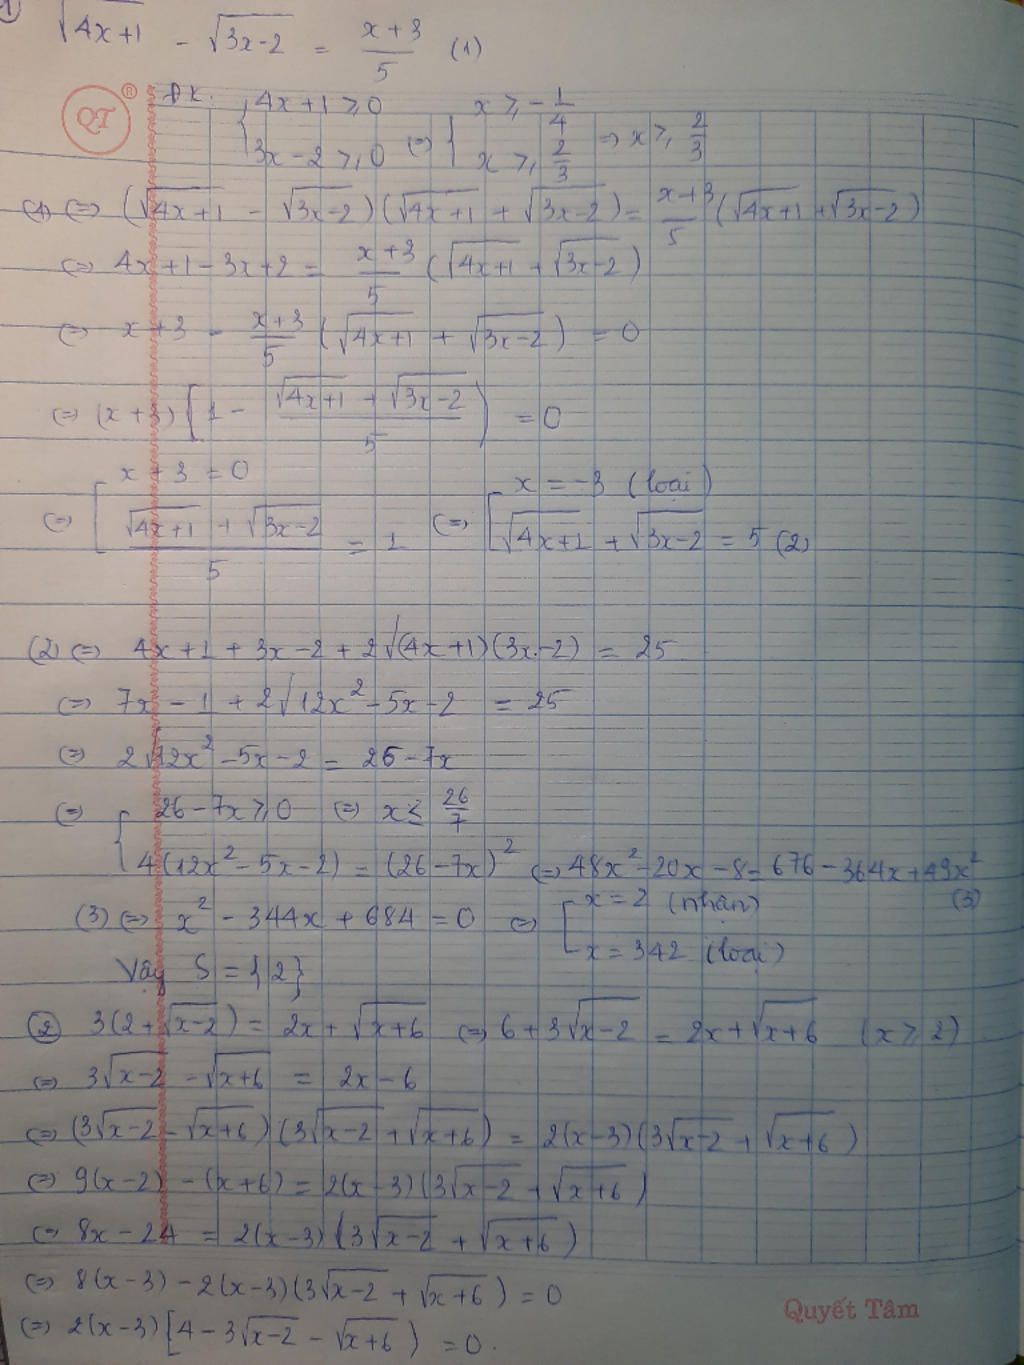 ① √(4x+1) - √(3x-2) = (x+3)/5 (1)
QT ®
ĐK: { 4x+1 ≥ 0 ; 3x-2 ≥ 0 (=) { x ≥ -1/4 ; x ≥ 2/3 => x ≥ 2/3
(1) (=) (√(4x+1) - √(3x-2))(√(4x+1) + √(3x-2)) = (x+3)/5 (√(4x+1) + √(3x-2))
(=) 4x+1-3x+2 = (x+3)/5 (√(4x+1) + √(3x-2))
(=) x+3 - (x+3)/5 (√(4x+1) + √(3x-2)) = 0
(=) (x+3) [1 - (√(4x+1) + √(3x-2))/5) = 0
(=) [ x+3 = 0 ; (√(4x+1) + √(3x-2))/5 = 1 (=) [ x = -3 (loại) ; √(4x+1) + √(3x-2) = 5 (2)
(2) (=) 4x+1+3x-2+2√(4x+1)(3x-2) = 25
(=) 7x-1+2√(12x²-5x-2) = 25
(=) 2√(12x²-5x-2) = 26-7x
(=) { 26-7x ≥ 0 (=) x ≤ 26/7
4(12x²-5x-2) = (26-7x)² (=) 48x²-20x-8 = 676-364x+49x² (3)
(3) (=) x²-344x+684 = 0 (=) [ x = 2 (nhận) ; x = 342 (loại)
Vậy S = {2}
② 3(2+√(x-2)) = 2x+√(x+6) (=) 6+3√(x-2) = 2x+√(x+6) (x ≥ 2)
(=) 3√(x-2) - √(x+6) = 2x-6
(=) (3√(x-2) - √(x+6))(3√(x-2) + √(x+6)) = 2(x-3)(3√(x-2) + √(x+6))
(=) 9(x-2) - (x+6) = 2(x-3)(3√(x-2) + √(x+6))
(=) 8x-24 = 2(x-3)(3√(x-2) + √(x+6))
(=) 8(x-3) - 2(x-3)(3√(x-2) + √(x+6)) = 0
(=) 2(x-3)[4-3√(x-2) - √(x+6)) = 0.
Quyết Tâm